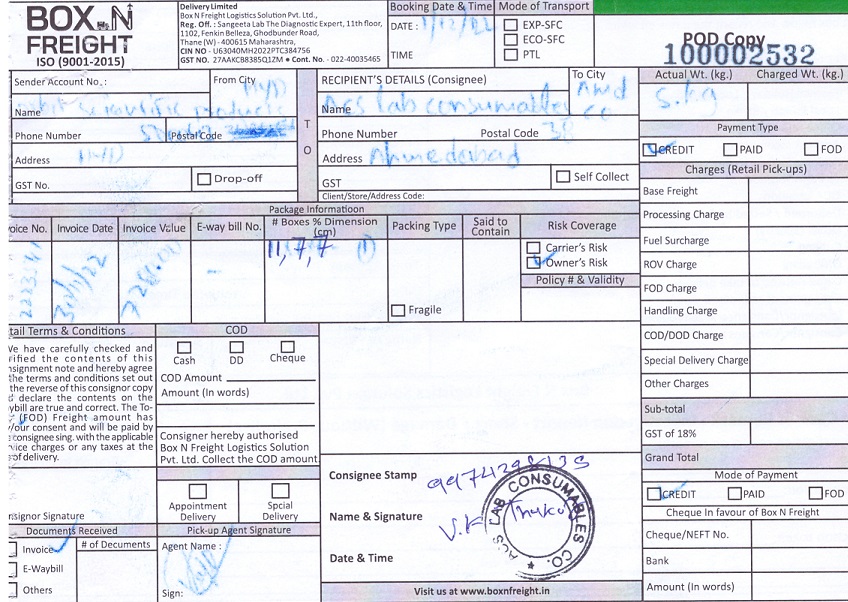 BOX N
FREIGHT
ISO (9001-2015)
Delivery Limited
Box N Freight Logistics Solution Pvt. Ltd.,
Reg. Off. : Sangeeta Lab The Diagnostic Expert, 11th floor,
1102, Fenkin Belleza, Ghodbunder Road,
Thane (W) - 400615 Maharashtra,
CIN NO - U63040MH2022PTC384756
GST NO. 27AAKCB8385Q1ZM • Cont. No. -022-40035465
Booking Date & Time
DATE : 1/12/22
TIME
Mode of Transport
EXP-SFC
ECO-SFC
PTL
POD Copy
100002532
Sender Account No.:
From City
Name Scientific Products
Phone Number
Postal Code
Address
GST No.
Drop-off
TO
RECIPIENT'S DETAILS (Consignee)
To City
Amd
Name ACS Lab Consumables Co
Phone Number
Postal Code 38
Address Ahmedabad
GST
Self Collect
Client/Store/Address Code:
Actual Wt. (kg.)
Charged Wt. (kg.)
5.kg
Payment Type
CREDIT
PAID
FOD
Charges (Retail Pick-ups)
Base Freight
Processing Charge
Fuel Surcharge
ROV Charge
FOD Charge
Handling Charge
COD/DOD Charge
Special Delivery Charge
Other Charges
Sub-total
GST of 18%
Grand Total
Mode of Payment
CREDIT
PAID
FOD
Cheque In favour of Box N Freight
Cheque/NEFT No.
Bank
Amount (In words)
Package Informatioon
oice No.
Invoice Date
Invoice Value
E-way bill No.
# Boxes % Dimension (cm)
Packing Type
Said to Contain
Risk Coverage
30/11/22
-
11,7,7 (1)
Fragile
Carrier's Risk
Owner's Risk
Policy # & Validity
tail Terms & Conditions
We have carefully checked and
rified the contents of this
nsignment note and hereby agree
the terms and conditions set out
the reverse of this consignor copy
d declare the contents on the
ybill are true and correct. The To-
(FOD) Freight amount has
/our consent and will be paid by
consignee sing. with the applicable
vice charges or any taxes at the
of delivery.
COD
Cash
DD
Cheque
COD Amount
Amount (In words)
Consigner hereby authorised
Box N Freight Logistics Solution
Pvt. Ltd. Collect the COD amount
nsignor Signature
Appointment Delivery
Spcial Delivery
Documents Received
Invoice
E-Waybill
Others
# of Documents
Pick-up Agent Signature
Agent Name :
Sign:
Consignee Stamp
Name & Signature
V.K Thakor
Date & Time
ACS LAB CONSUMABLES CO.
Visit us at www.boxnfreight.in